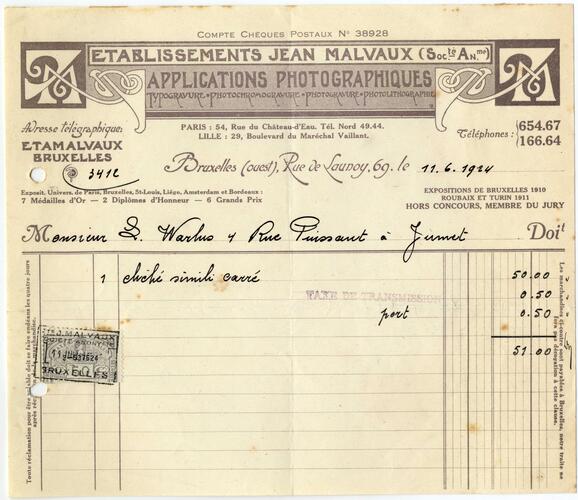 COMPTE CHÈQUES POSTAUX N° 38928
ETABLISSEMENTS JEAN MALVAUX (Soc.té An.me)
APPLICATIONS PHOTOGRAPHIQUES
TYPOGRAVURE · PHOTOCHROMOGRAVURE · PHOTOGRAVURE · PHOTOLITHOGRAPHIE
JM
JM
Adresse télégraphique:
ETAMALVAUX
BRUXELLES
3412
PARIS : 54, Rue du Château-d'Eau. Tél. Nord 49.44.
LILLE : 29, Boulevard du Maréchal Vaillant.
Téléphones : 654.67
166.64
Bruxelles (ouest), Rue de Launoy, 69, le 11.6.1924
Exposit. Univers. de Paris, Bruxelles, St-Louis, Liége, Amsterdam et Bordeaux :
7 Médailles d'Or — 2 Diplômes d'Honneur — 6 Grands Prix
EXPOSITIONS DE BRUXELLES 1910
ROUBAIX ET TURIN 1911
HORS CONCOURS, MEMBRE DU JURY
Monsieur L. Warlus 4 Rue Puissant à Jumet Doit
1 cliché simili carré 50.00
TAXE DE TRANSMISSION 0.50
port 0.50
51.00
MALVAUX
BRUXELLES
Toute réclamation pour être valable doit se faire endéans les quatre jours
Les marchandises ci-contre sont payables à Bruxelles, notre traite ne
fera pas dérogation à cette clause.